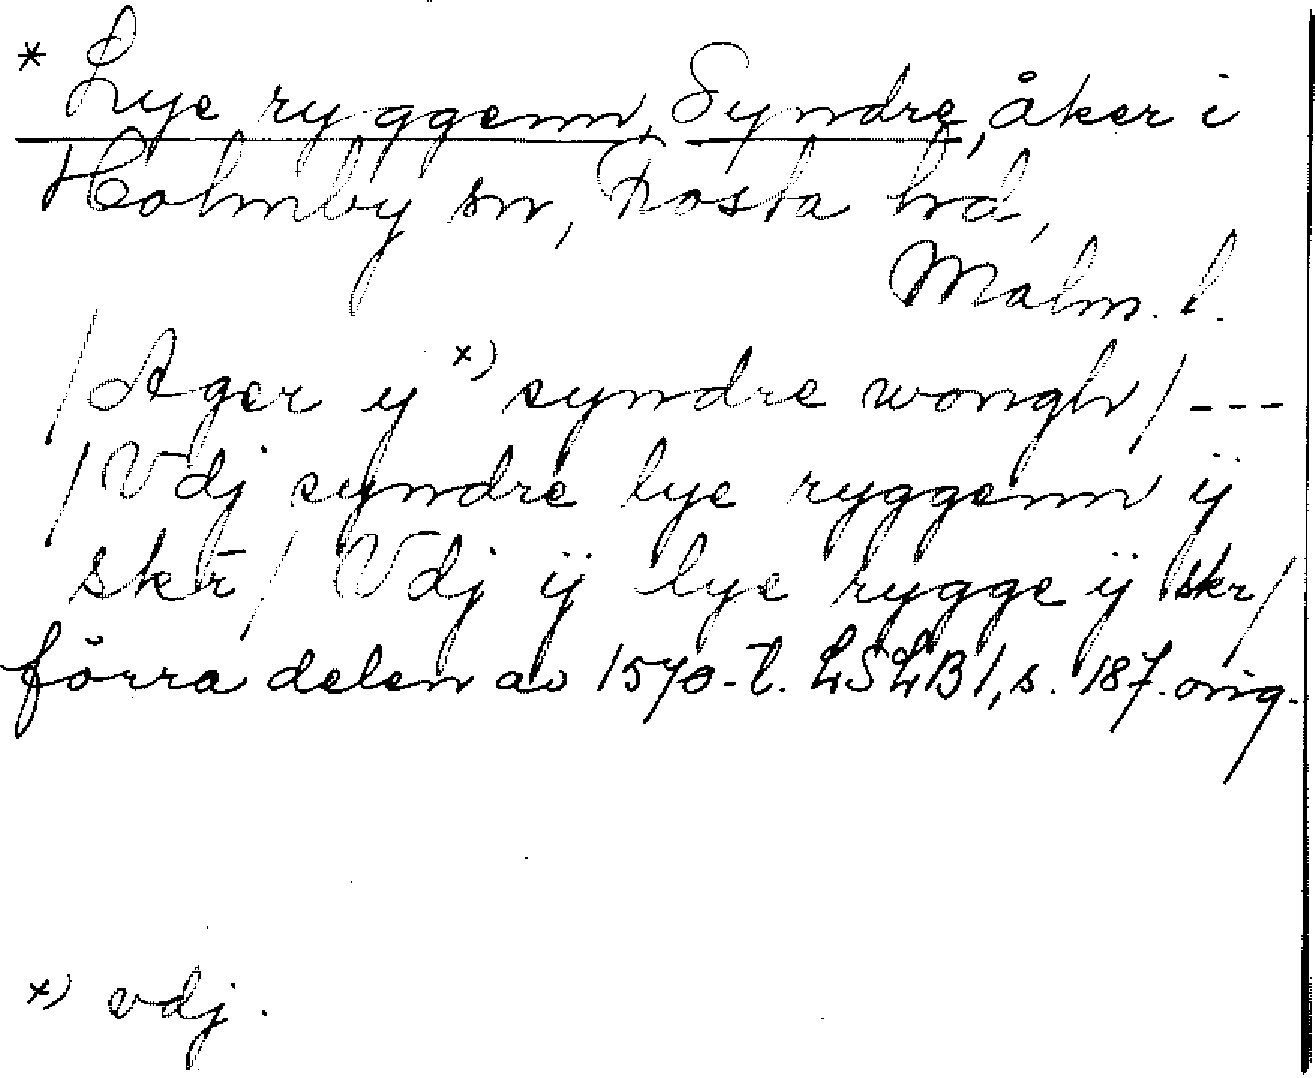 * Lye ryggenn, Syndre, åker i
Holmby sn, Frosta hd,
Malm. l.
/Ager y x) syndre wongh/ ---
/Vdj syndre lye ryggenn ÿ
skr̄/ Vdj ÿ lye rygge ÿ skr/
förra delen av 1570-t. LSLB1, s. 187. orig.
x) vdj.